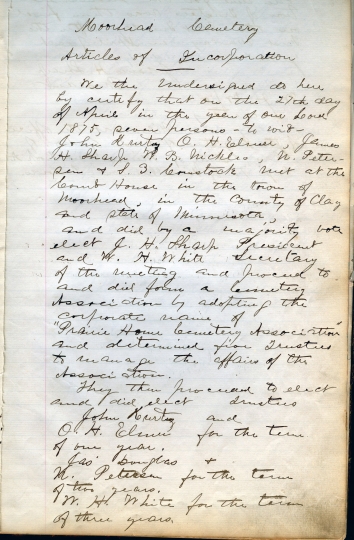 Moorhead Cemetery
Articles of Incorporation
We the undersigned do here
by certify that on the 27th day
of April in the year of our Lord
1875, seven persons - to wit -
John Kurtz, O. H. Elmer, James
H. Sharp, W. B. Nickles, N. Peter-
sen & S. G. Comstock met at the
Court House, in the town of
Moorhead, in the County of Clay
and state of Minnesota,
and did by a majority vote
elect J. H. Sharp President
and W. H. White Secretary
of the meeting and proceed to
and did form a Cemetery
Association by adopting the
corporate name of
"Prairie Home Cemetery Association"
and determined five Trustees
to manage the affairs of the
Association.
They then proceed to elect
and did elect trustees
John Kurtz and
O. H. Elmer for the term
of one year.
Jas Douglas +
N. Petersen for the term
of two years.
W. H. White for the term
of three years.